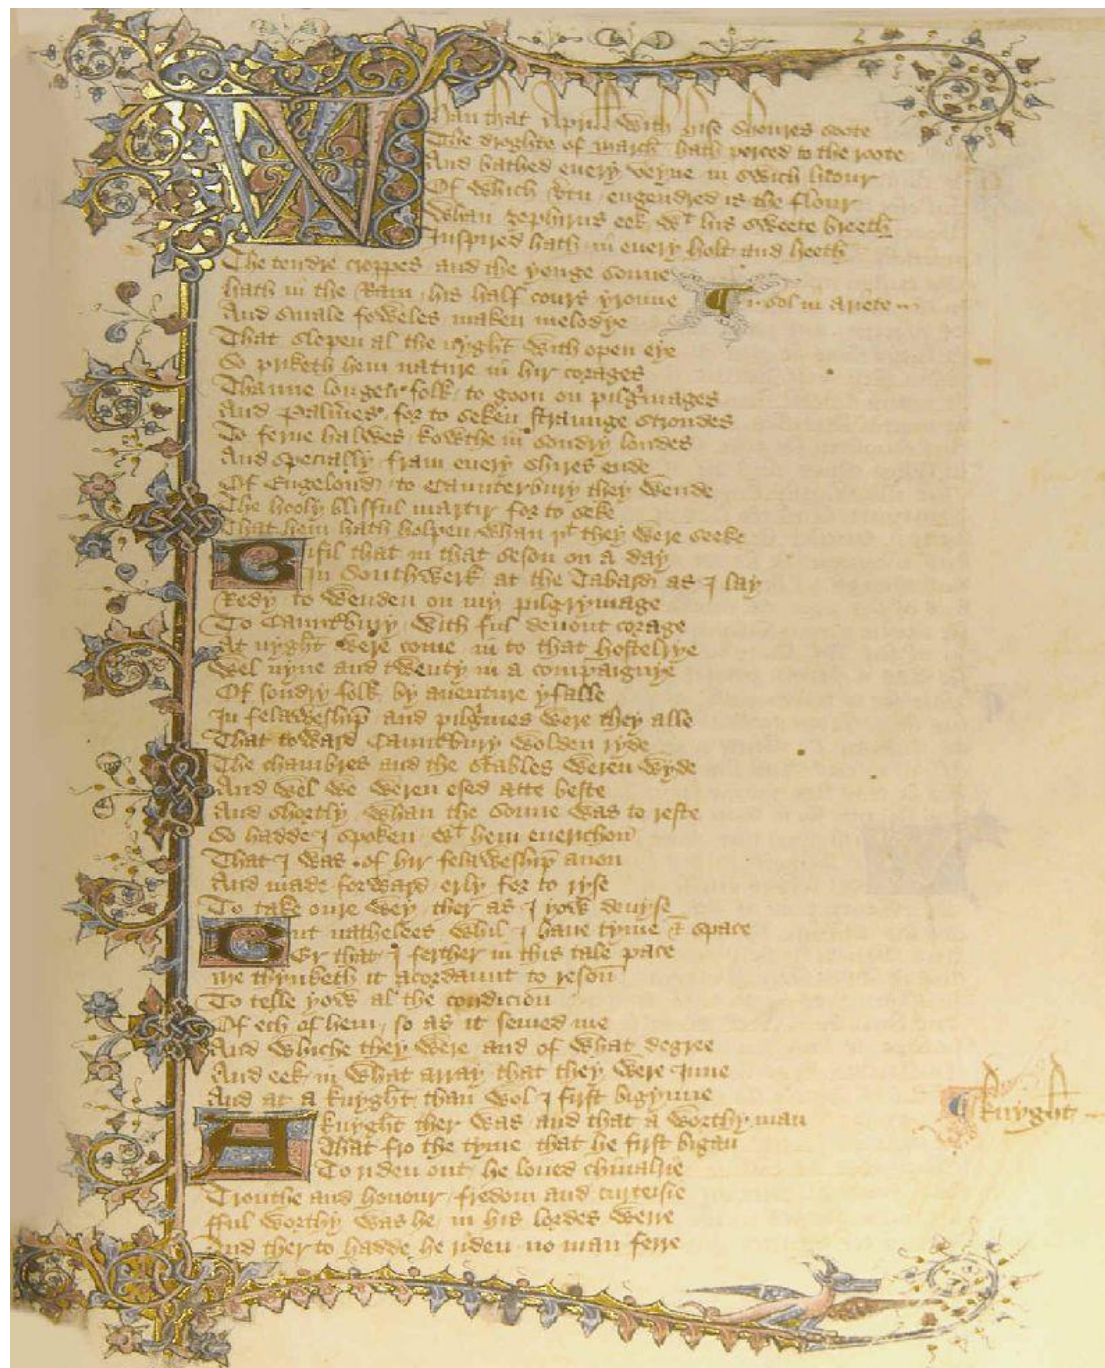 Whan that Aprill with hise shoures soote
The droghte of march hath perced to the roote
And bathed every veyne in swich licour
Of which vtu engendred is the flour
Whan zephirus eek wt his sweete breeth
Inspired hath in euery holt and heeth
The tendre croppes and the yonge sonne
hath in the Ram his half cours yronne
sol in ariete
And smale foweles maken melodye
That slepen al the nyght with open eye
So priketh hem nature in hir corages
Thanne longen folk to goon on pilgrimages
And Palmes for to seken straunge strondes
To ferne halwes kowthe in sondry londes
And specially fram euery shires ende
Of Engelond to Caunterbury they wende
The hooly blisful martir for to seke
That hem hath holpen whan yt they were seeke
Bifil that in that seson on a day
In Southwerk at the Tabard as I lay
Redy to wenden on my pilgrymage
To Cauntbury with ful deuout corage
At nyght were come in to that hostelrye
Wel nyne and twenty in a compaignye
Of sondry folk by auenture yfalle
In felaweshipe and pilgrimes were they alle
That toward Cauntbury wolden ryde
The chambres and the stables weren wyde
And wel we weren esed atte beste
And shortly whan the sonne was to reste
So hadde I spoken wt hem euerichon
That I was of hir felaweshipe anon
And made forward erly for to ryse
To take oure wey ther as I yow deuyse
But nathelees whil I haue tyme & space
Er that I ferther in this tale pace
me thynketh it acordaunt to reson
To telle yow al the condicion
Of ech of hem so as it semed me
And whiche they were and of what degree
And eek in what array that they were Inne
And at a knyght than wol I first bigynne
A knyght ther was and that a worthy man
knyght
That fro the tyme that he first bigan
To riden out he loued chiualrie
Trouthe and honour fredom and curteisie
fful worthy was he in his lordes werre
And ther to hadde he riden no man ferre